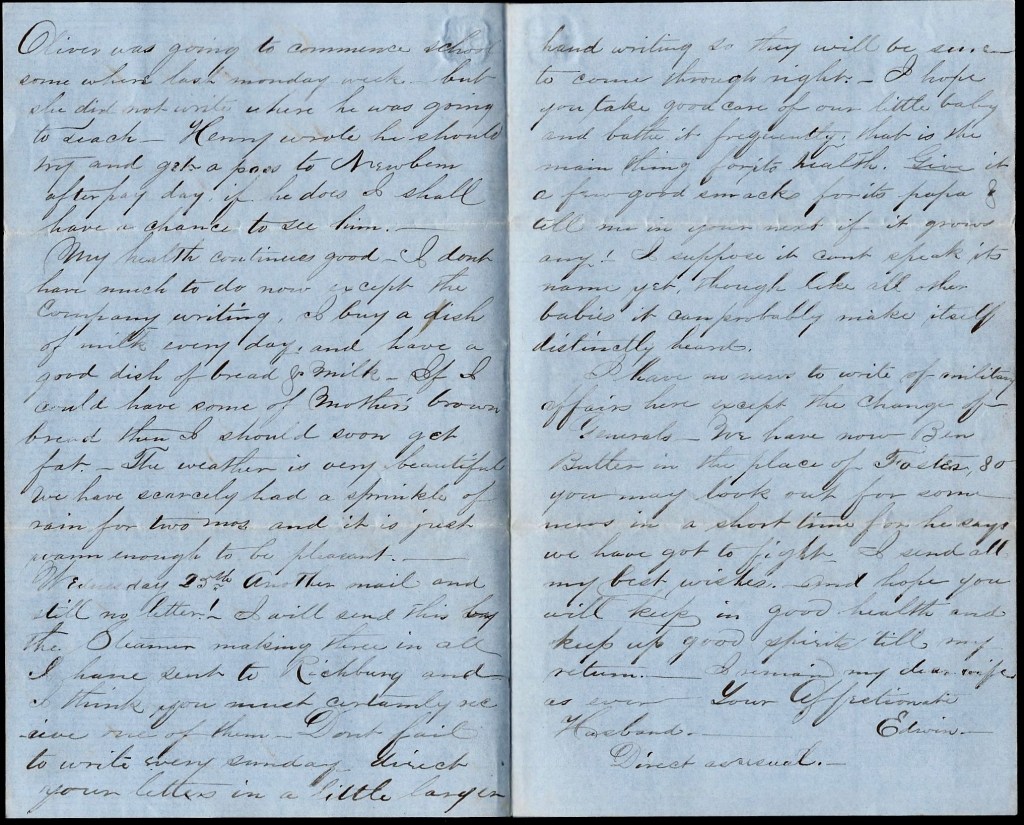 Oliver was going to commence school
some where last monday week - but
she did not write where he was going
to teach - Henry wrote he should
try and get a pass to Newbern
after pay day, if he does I shall
have a chance to see him. -
My health continues good - I dont
have much to do now except the
Company writing. I buy a dish
of milk every day, and have a
good dish of bread & Milk - If I
could have some of Mother's brown
bread then I should soon get
fat. - The weather is very beautiful
We have scarcely had a sprinkle of
rain for two mos. and it is just
warm enough to be pleasant. -
Wednesday 25th Another mail and
still no letter! - I will send this by
the Steamer making three in all
I have sent to Richburg and
I think you must certainly rec
-ieve one of them - Dont fail
to write every sunday direct
your letters in a little larger
hand writing so they will be sure
to come through right. - I hope
you take good care of our little baby
and bathe it frequently, that is the
main thing for its health. Give it
a few good smacks for its papa &
tell me in your next if it grows
any! I suppose it cant speak its
name yet, though like all other
babies it can probably make itself
distinctly heard.
I have no news to write of military
affairs here except the change of
Generals - We have now Ben
Butler in the place of Foster, so
you may look out for some
news in a short time for he says
we have got to fight I send all
my best wishes. and hope you
will keep in good health and
keep up good spirits till my
return. - I remain my dear wife
as ever Your Affectionate
Husband. - Edwin. -
Direct as usual. -